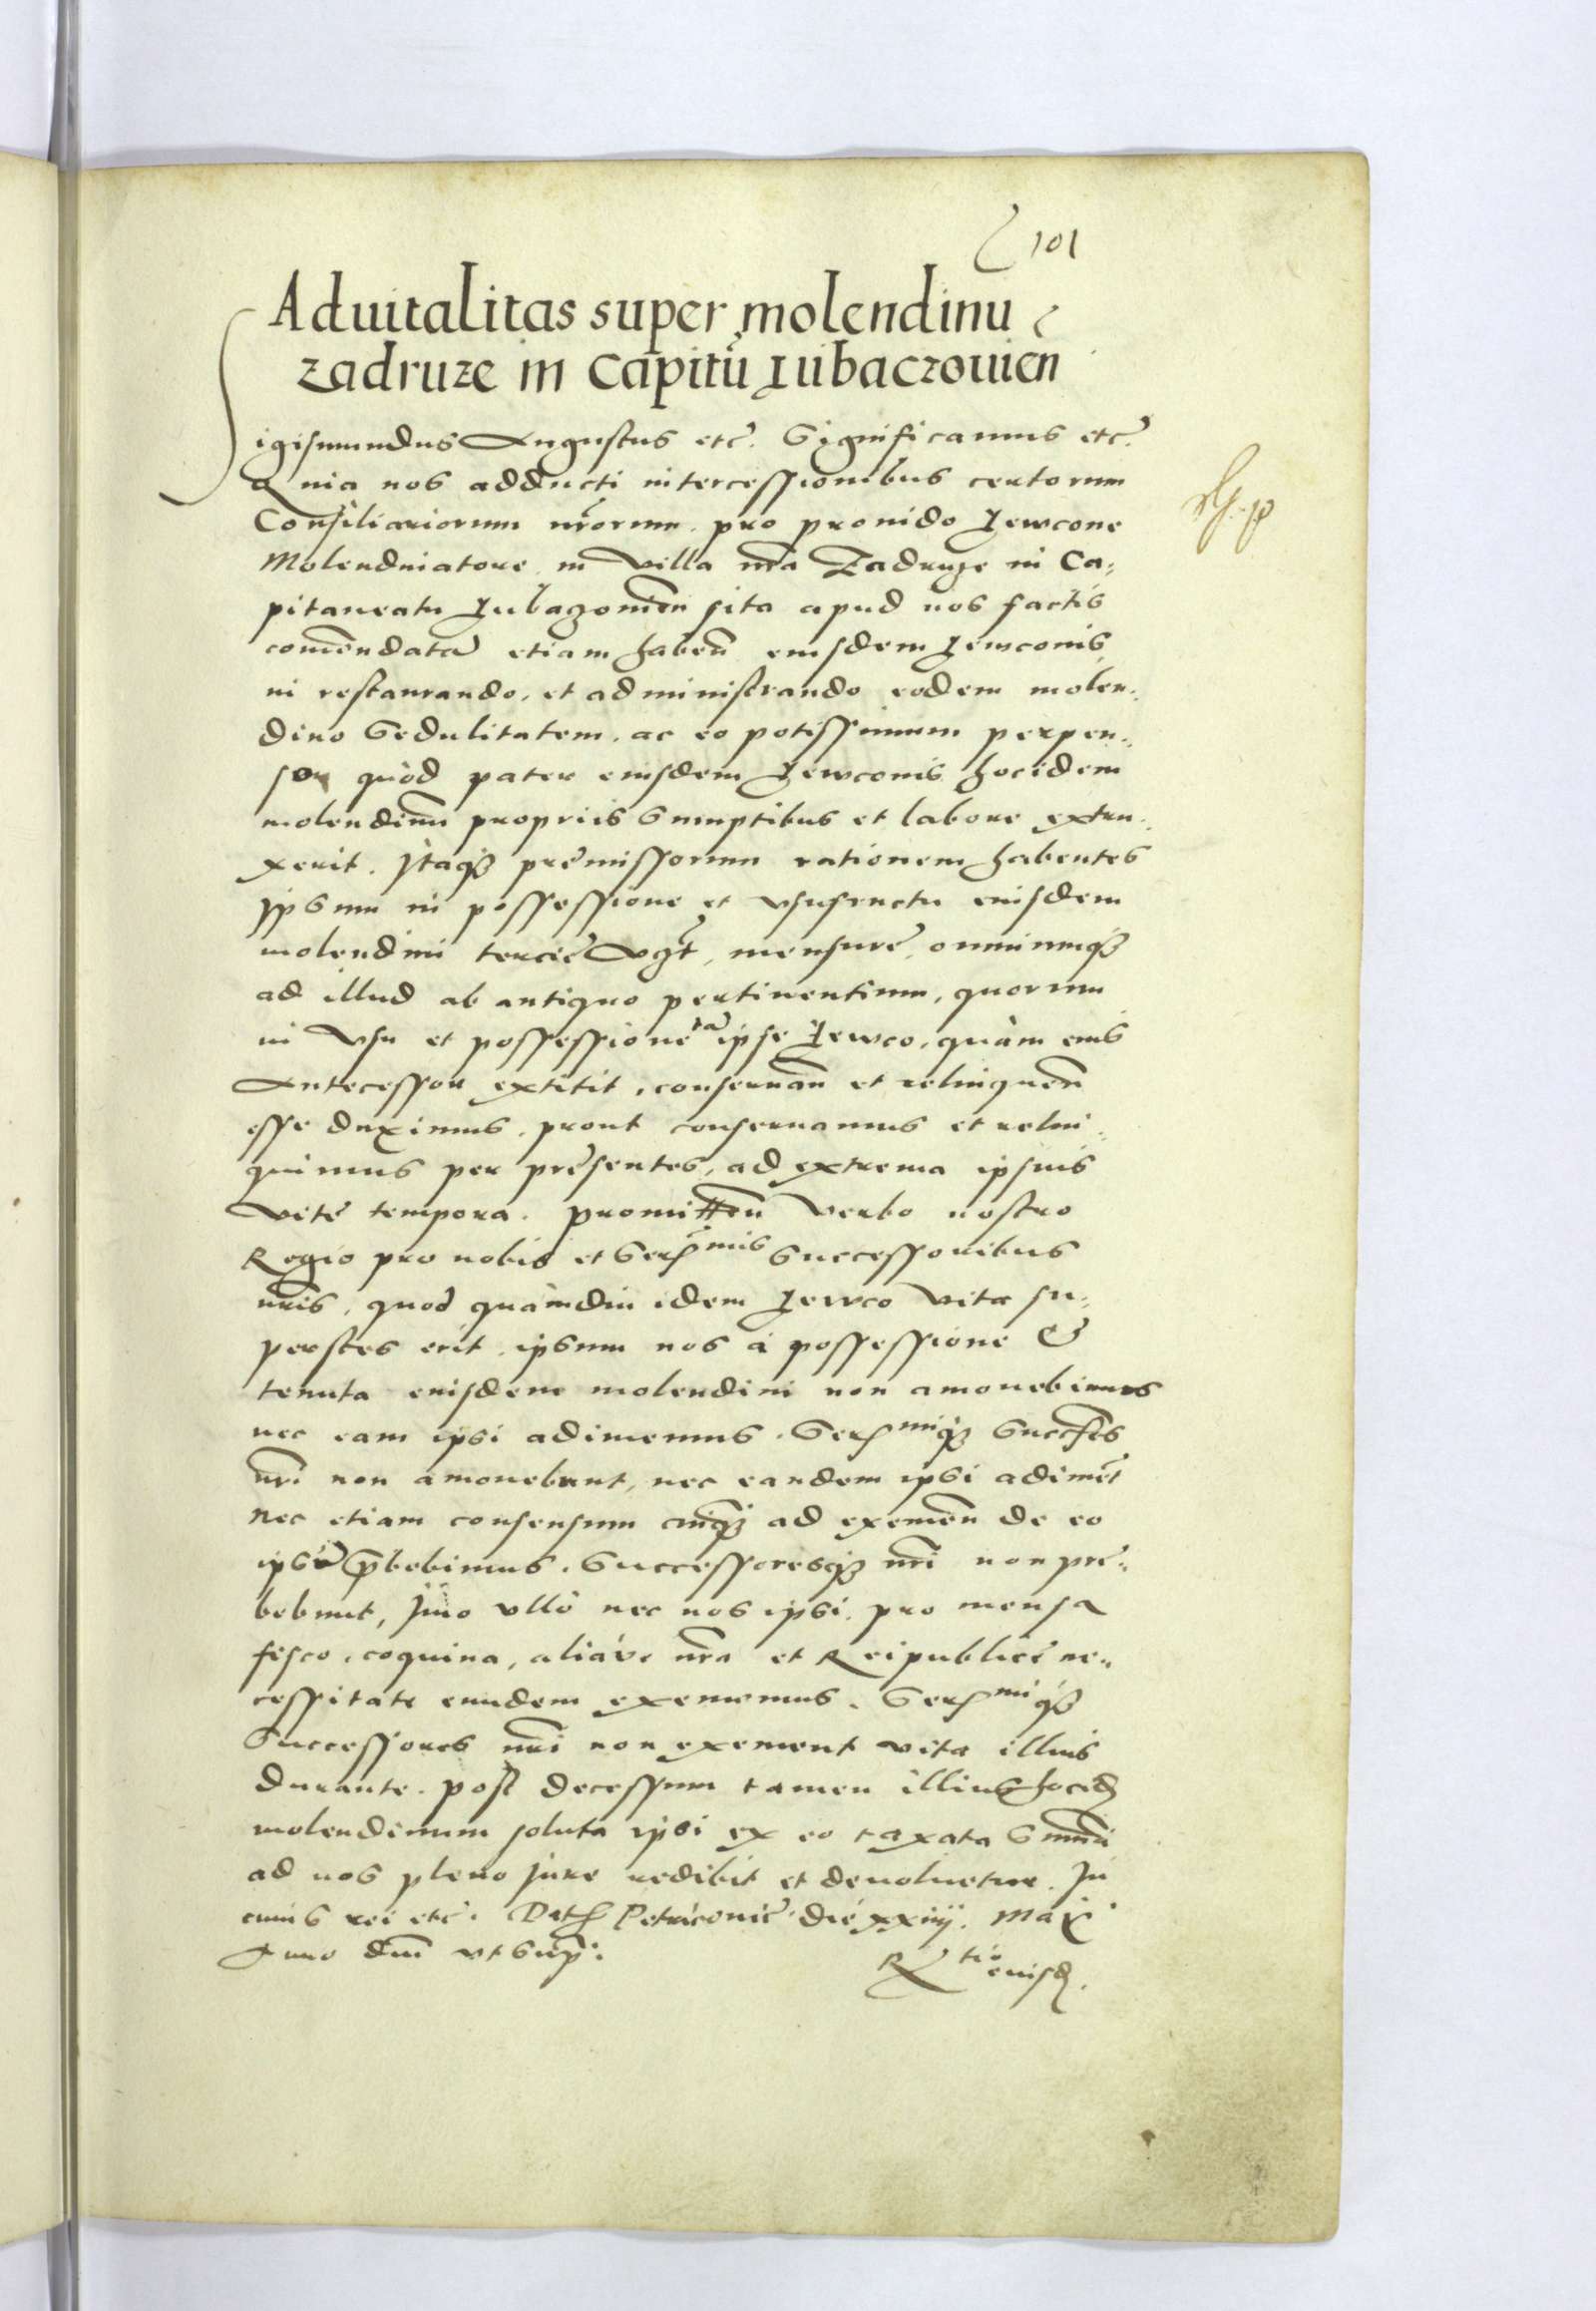 101
Aduitalitas super molendinu
zadruze in Capitũ Lubaczouien̄
Sigismundus Augustus etc̃. Significamus etc̃.
Quia nos adducti intercessionibus certorum
Consiliariorum nr̃orum. pro prouido Jewcone
Molendinatore in villa nr̃a Zadruze in Ca⸗
pitaneatu Lubazouien̄ sita apud nos factis
com̄endatã etiam haben̄ eiusdem Jewconis
in restaurando, et administrando eodem molen⸗
dino Sedulitatem, ac eo potissimum perpen⸗
so quòd pater eiusdem Jewconis hocidem
molendinũ propriis Sumptibus et labore extru⸗
xerit. Itaq3 premissorum rationem habentes
Ipsum in possessione et vsufructu eiusdem
molendini tercie vz̃t, mensure, omniumq3
ad illud ab antiquo pertinentium, quorum
in vsu et possessione tã ipse Jewco, quàm eius
Antecessor extitit, conseruan̄ et relinquen̄
esse duximus, prout conseruamus et relin⸗
quimus per presentes, ad extrema ipsius
vite tempora. promitten̄ Verbo nostro
Regio pro nobis et Ser mis Successoribus
nr̃is, quod quàmdiu idem Jewco vita su⸗
perstes erit, ipsum nos à possessione &
tenuta eiusdem molendini non amouebimus
nec eam ipsi adimemus. Ser miq3 Succ̃res
nr̃i non amouebunt, nec eandem ipsi adimẽt
Nec etiam consensum cuiq3 ad eximen̄ de eo
ipsũ p̃bebimus. Successoresq3 nr̃i non pre⸗
bebunt, Imo vllo nec nos ipsi. pro mensa
fisco, coquina, aliáve nr̃a et Reipublice ne⸗
cessitate eundem eximemus. Ser miq3
Successores nr̃i non exement vita illius
durante. post decessum tamen illius hocid
molendinum soluta ipsi ex eo taxata Summa
ad nos pleno Jure redibit et deuoluetur. In
cuius rei etc̃. Dat Petricouie die xxiiij. Maij
Anno dn̄i vt Supr̃.
R tio eiusd.